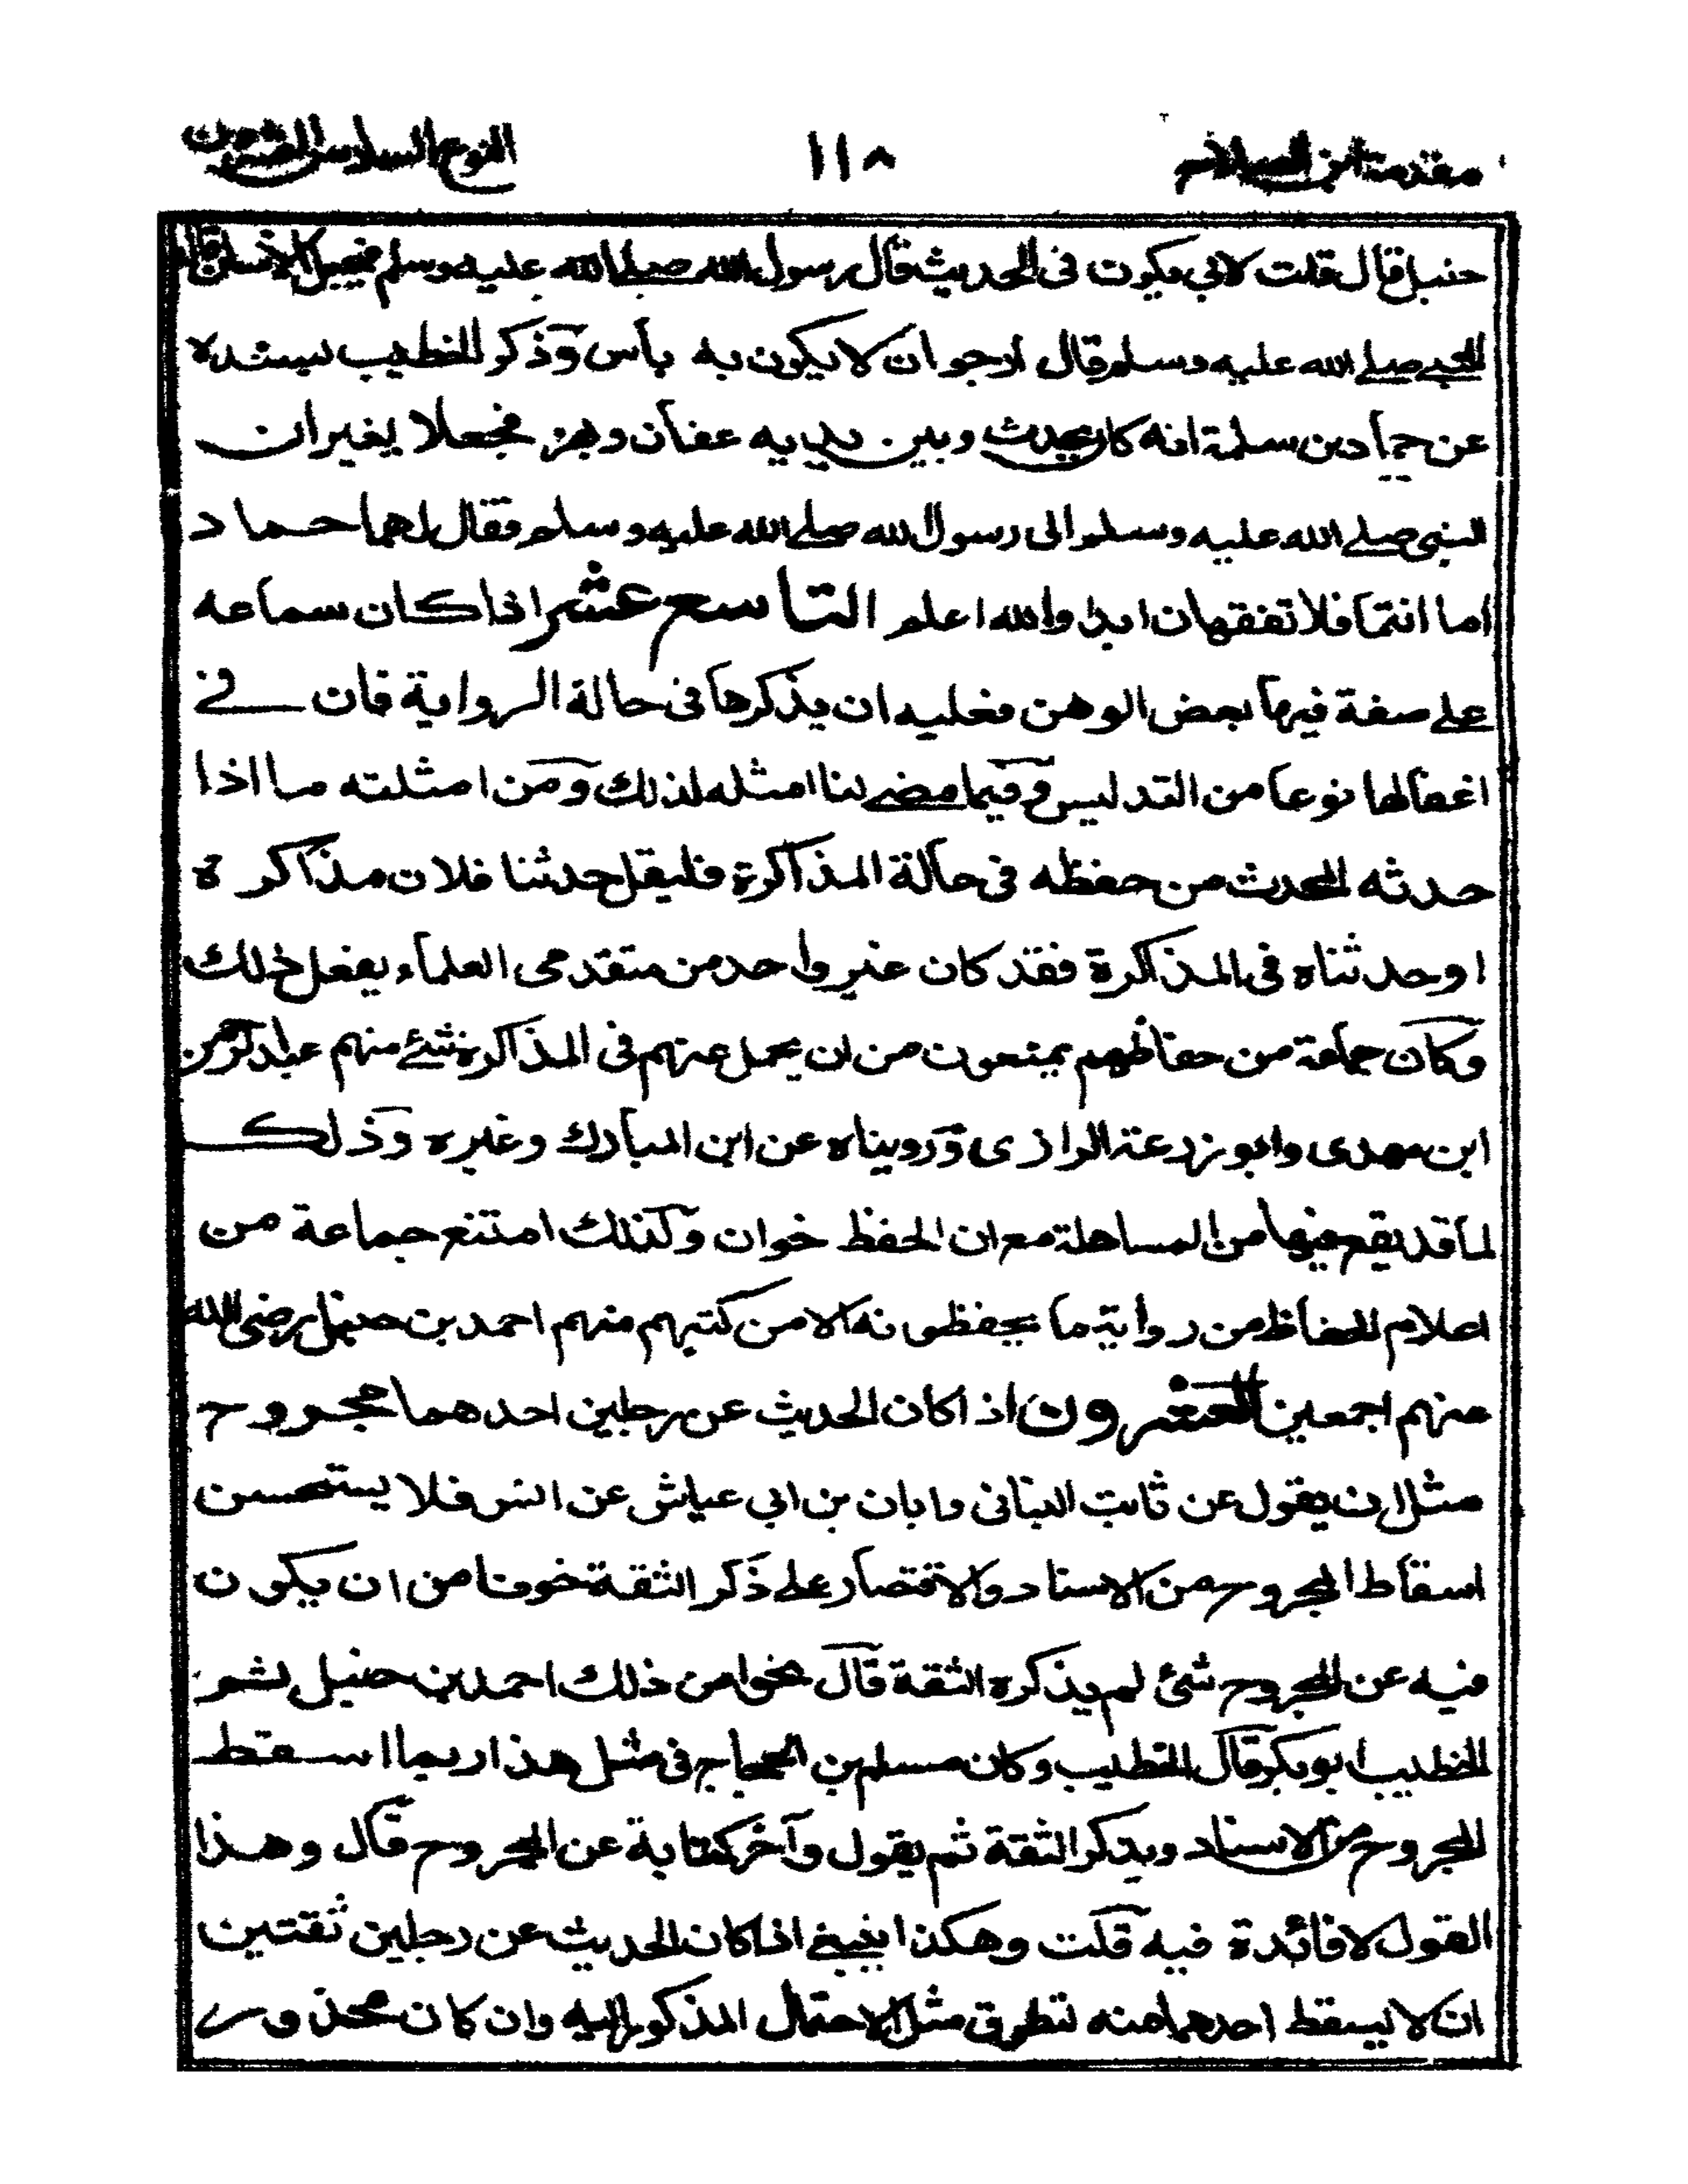 مقدمة ابن الصلاح ١١٨ النوع السادس والعشرون
حنبل قال قلت لابي يكون فى الحديث قال رسول الله صلى الله عليه وسلم فيجعل الانسان قال
النبي صلى الله عليه وسلم قال ارجو ان لا يكون به بأس وذكر الخطيب بسنده
عن حماد بن سلمة انه كان يحدث وبين يديه عفان وبهز فجعلا يغيران
النبى صلى الله عليه وسلم الى رسول الله صلى الله عليه وسلم فقال لهما حماد
اما انتما فلا تفقهان ابدا والله اعلم التاسع عشر اذا كان سماعه
على صفة فيها بعض الوهن فعليه ان يذكرها فى حالة الرواية فان في
اغفالها نوعا من التدليس وفيما مضى لنا امثله لذلك ومن امثلته ما اذا
حدثه المحدث من حفظه فى حالة المذاكرة فليقل حدثنا فلان مذاكرة
او حدثناه فى المذاكرة فقد كان غير واحد من متقدمى العلماء يفعل ذلك
وكان جماعة من حفاظهم يمنعون من ان يحمل عنهم فى المذاكرة شئ منهم عبد الرحمن
ابن مهدى وابو زرعة الرازى ورويناه عن ابن المبارك وغيره وذلك
لما قد يقع فيها من المساهلة مع ان الحفظ خوان وكذلك امتنع جماعة من
اعلام الحفاظ من رواية ما يحفظونه الا من كتبهم منهم احمد بن حنبل رضى الله
عنهم اجمعين العشرون اذا كان الحديث عن رجلين احدهما مجروح
مثل ان يقول عن ثابت البنانى وابان بن ابي عياش عن انس فلا يستحسن
اسقاط المجروح من الاسناد والاقتصار على ذكر الثقة خوفا من ان يكون
فيه عن المجروح شئ لم يذكره الثقة قال نحوا من ذلك احمد بن حنبل ثم
الخطيب ابو بكر قال الخطيب وكان مسلم بن الحجاج فى مثل هذا ربما اسقط
المجروح من الاسناد ويذكر الثقة ثم يقول وآخر كناية عن المجروح قال وهذا
القول لا فائدة فيه قلت وهكذا ينبغي اذا كان الحديث عن رجلين ثقتين
ان لا يسقط احدهما منه لتطرق مثل الاحتمال المذكور اليه وان كان محذور